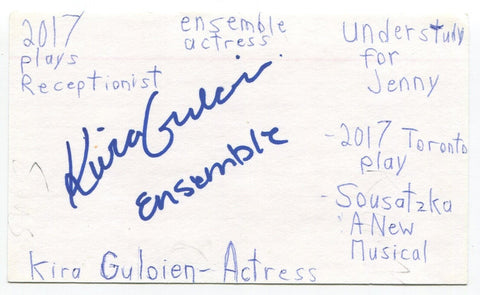 2017
plays
Receptionist
ensemble
actress
Understudy
for
Jenny
Kira Guloien
ensemble
-2017 Toronto
play
- Sousatzka
A New
Musical
Kira Guloien- Actress